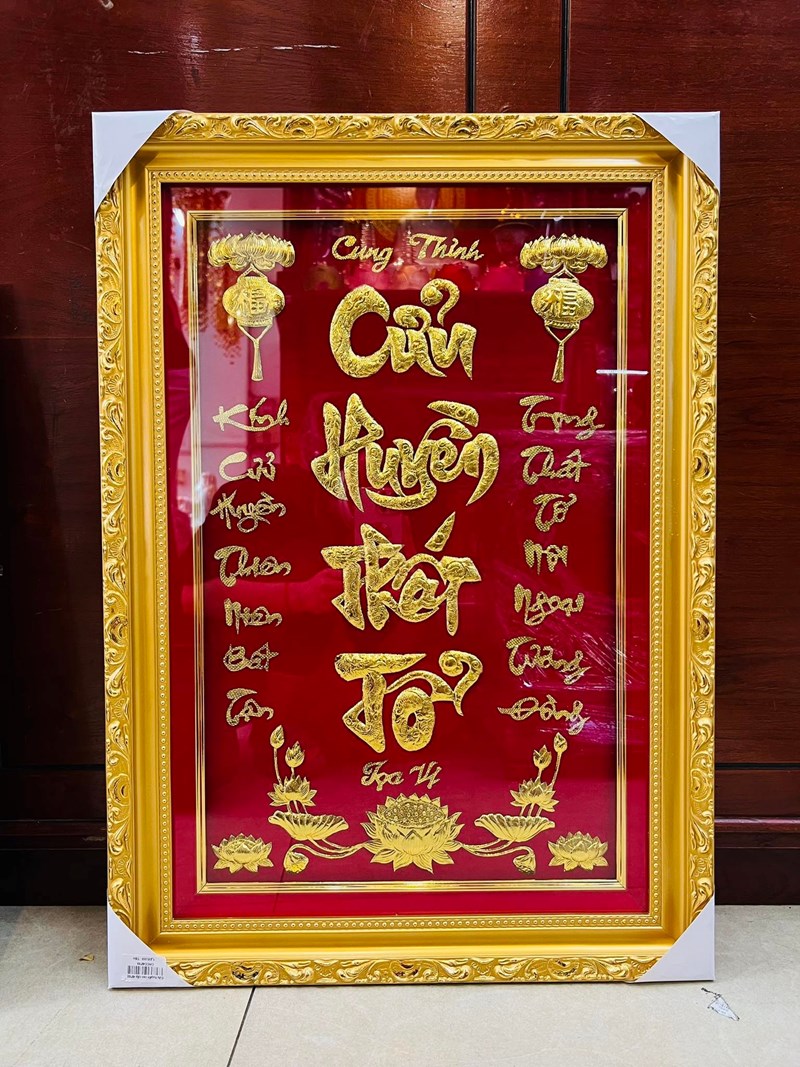 Cung Thỉnh
福
福
Cửu
Huyền
Thất
Tổ
Tọa Vị
Kính
Cửu
Huyền
Thiên
Niên
Bất
Tận
Trọng
Thất
Tổ
Nội
Ngoại
Tương
Đồng